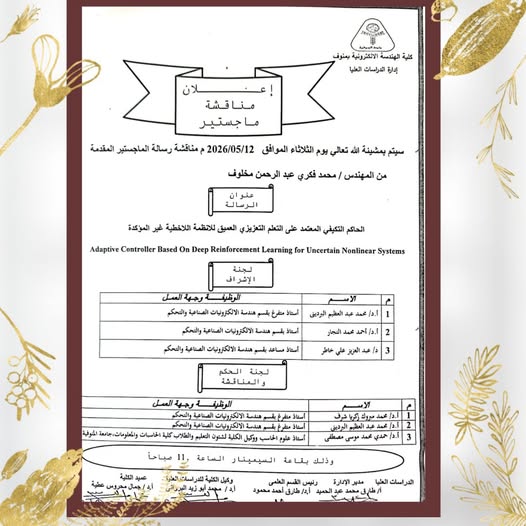 كلية الهندسة الالكترونية بمنوف
إدارة الدراسات العليا
إعـــلان
مناقشة
ماجستير
سيتم بمشيئة الله تعالي يوم الثلاثاء الموافق 2026/05/12 م مناقشة رسالة الماجستير المقدمة
من المهندس / محمد فكري عبد الرحمن مخلوف
عنوان
الرسالة
الحاكم التكيفي المعتمد على التعلم التعزيزي العميق للانظمة اللاخطية غير المؤكدة
Adaptive Controller Based On Deep Reinforcement Learning for Uncertain Nonlinear Systems
لجنة
الإشراف
م الاســـم الوظيفـــة وجهـة العمـل
1 أ.د/ محمد عبد العظيم البرديني أستاذ متفرغ بقسم هندسة الالكترونيات الصناعية والتحكم
2 أ.د/ احمد محمد النجار أستاذ بقسم هندسة الالكترونيات الصناعية والتحكم
3 د/ عبد العزيز علي خاطر أستاذ مساعد بقسم هندسة الالكترونيات الصناعية والتحكم
لجنة الحكم
والمناقشة
م الاســـم الوظيفـــة وجهـة العمـل
1 أ.د/ محمد مبروك زكريا شرف أستاذ متفرغ بقسم هندسة الالكترونيات الصناعية والتحكم
2 أ.د/ محمد عبد العظيم البرديني أستاذ متفرغ بقسم هندسة الالكترونيات الصناعية والتحكم
3 أ.د/ حمدي محمد موسى مصطفى أستاذ علوم الحاسب ووكيل الكلية لشئون التعليم والطلاب كلية الحاسبات والمعلومات، جامعة المنوفية
وذلك بقاعة السيمينار الساعة 11 صباحاً
الدراسات العليا مدير الإدارة رئيس القسم العلمى وكيل الكلية للدراسات العليا عميد الكلية
أ/ طارق محمد عبد الحميد أ.د/ طارق أحمد محمود أ.د/ محمد أبو زيد البرواني أ.د/ جمال محروس عطية